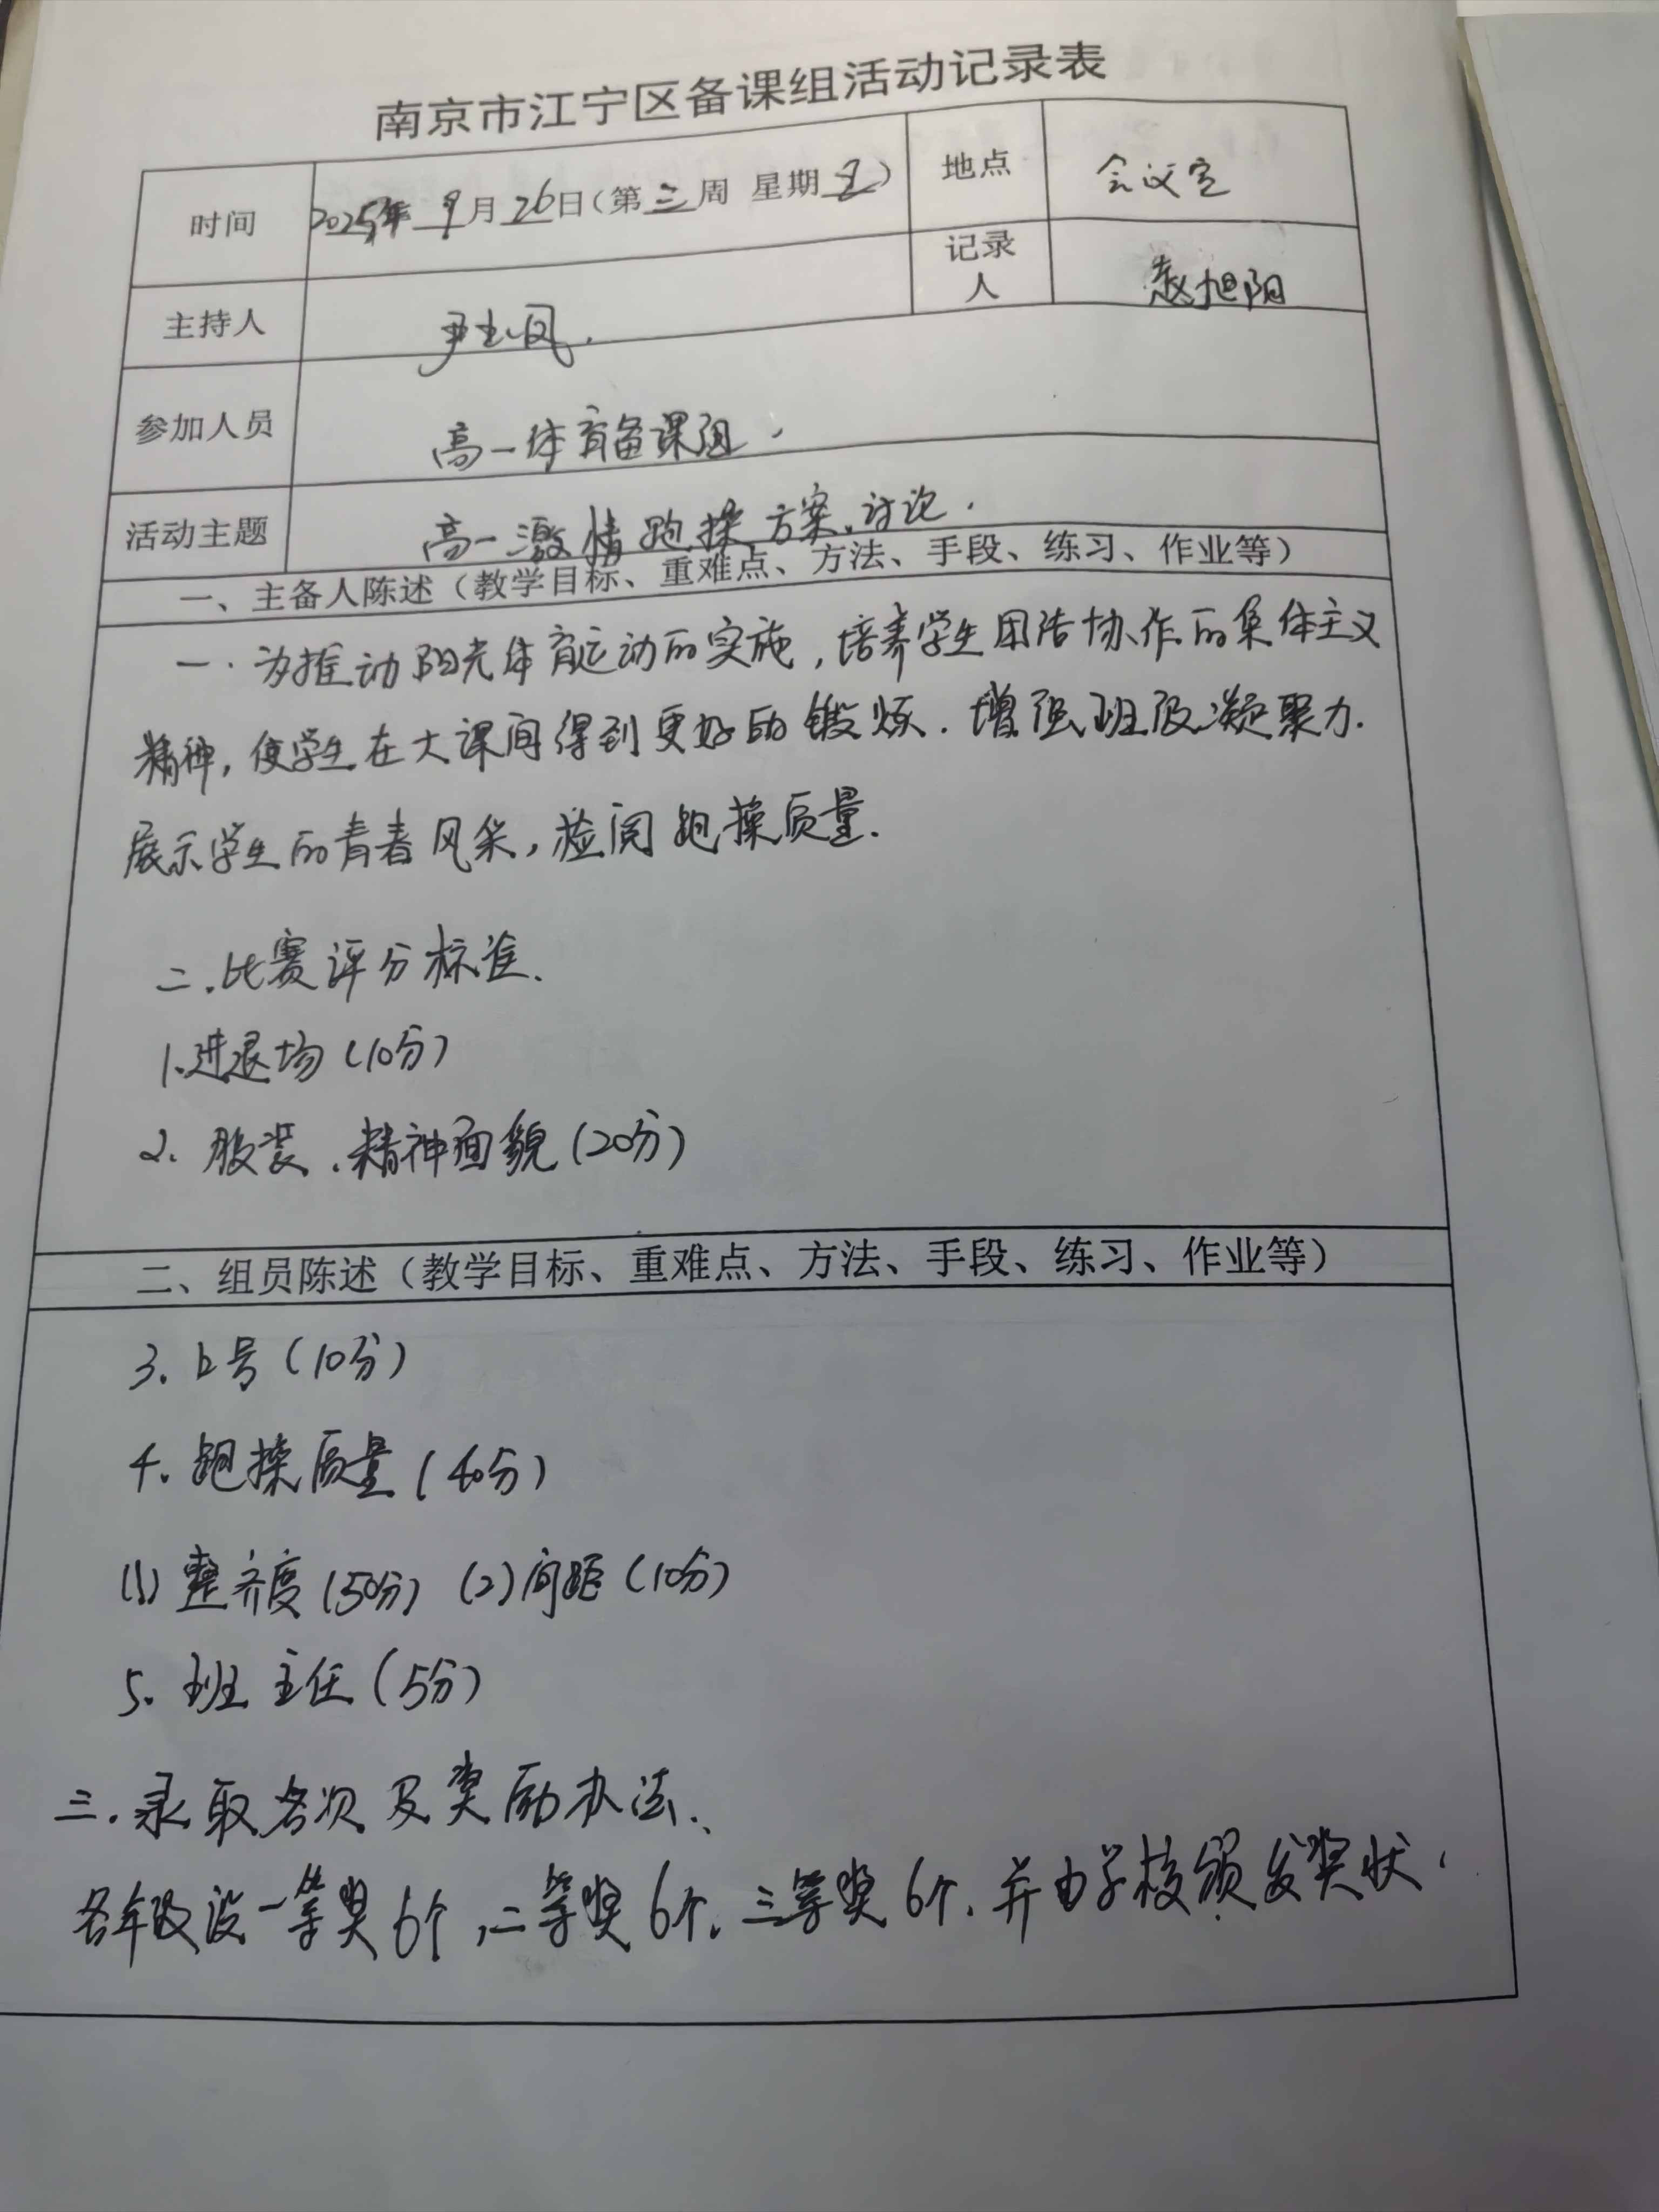 南京市江宁区备课组活动记录表
时间 2025年 9月26日(第三周 星期五) 地点 会议室
主持人 尹 凤. 记录人 赵旭阳
参加人员 高一体育备课组.
活动主题 高一激情跑操方案.讨论.
一、主备人陈述(教学目标、重难点、方法、手段、练习、作业等)
一.为推动阳光体育运动的实施,培养学生团结协作的集体主义
精神,使学生在大课间得到更好的锻炼.增强班级凝聚力.
展示学生的青春风采,检阅跑操质量.
二.比赛评分标准.
1.进退场(10分)
2.服装.精神面貌(20分)
二、组员陈述(教学目标、重难点、方法、手段、练习、作业等)
3.口号(10分)
4.跑操质量(40分)
(1)整齐度(50分) (2)间距(10分)
5.班主任(5分)
三.录取名次及奖励办法.
各年级设一等奖6个,二等奖6个.三等奖6个.并由学校颁发奖状.